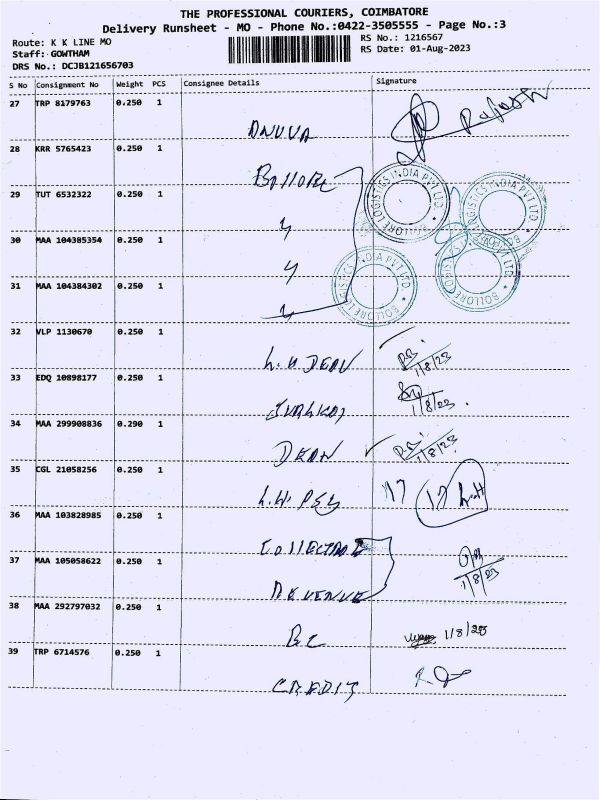 THE PROFESSIONAL COURIERS, COIMBATORE
Delivery Runsheet - MO - Phone No.:0422-3505555 - Page No.:3
Route: K K LINE MO
RS No.: 1216567
Staff: GOWTHAM
RS Date: 01-Aug-2023
DRS No.: DCJB121656703
S No Consignment No Weight PCS Consignee Details Signature
27 TRP 8179763 0.250 1
Rajesh
28 KRR 5765423 0.250 1
BOLLORE LOGISTICS INDIA PVT LTD.
29 TUT 6532322 0.250 1
BOLLORE LOGISTICS INDIA PVT LTD.
30 MAA 104385354 0.250 1
BOLLORE LOGISTICS INDIA PVT LTD.
31 MAA 104384302 0.250 1
BOLLORE LOGISTICS INDIA PVT LTD.
32 VLP 1130670 0.250 1
1/8/23
33 EDQ 10898177 0.250 1
1/8/23
34 MAA 299908836 0.290 1
DEAN 1/8/23
35 CGL 21058256 0.250 1
17
36 MAA 103828985 0.250 1
37 MAA 105058622 0.250 1
REVENUE 1/8/23
38 MAA 292797032 0.250 1
1/8/23
39 TRP 6714576 0.250 1
CREDIT